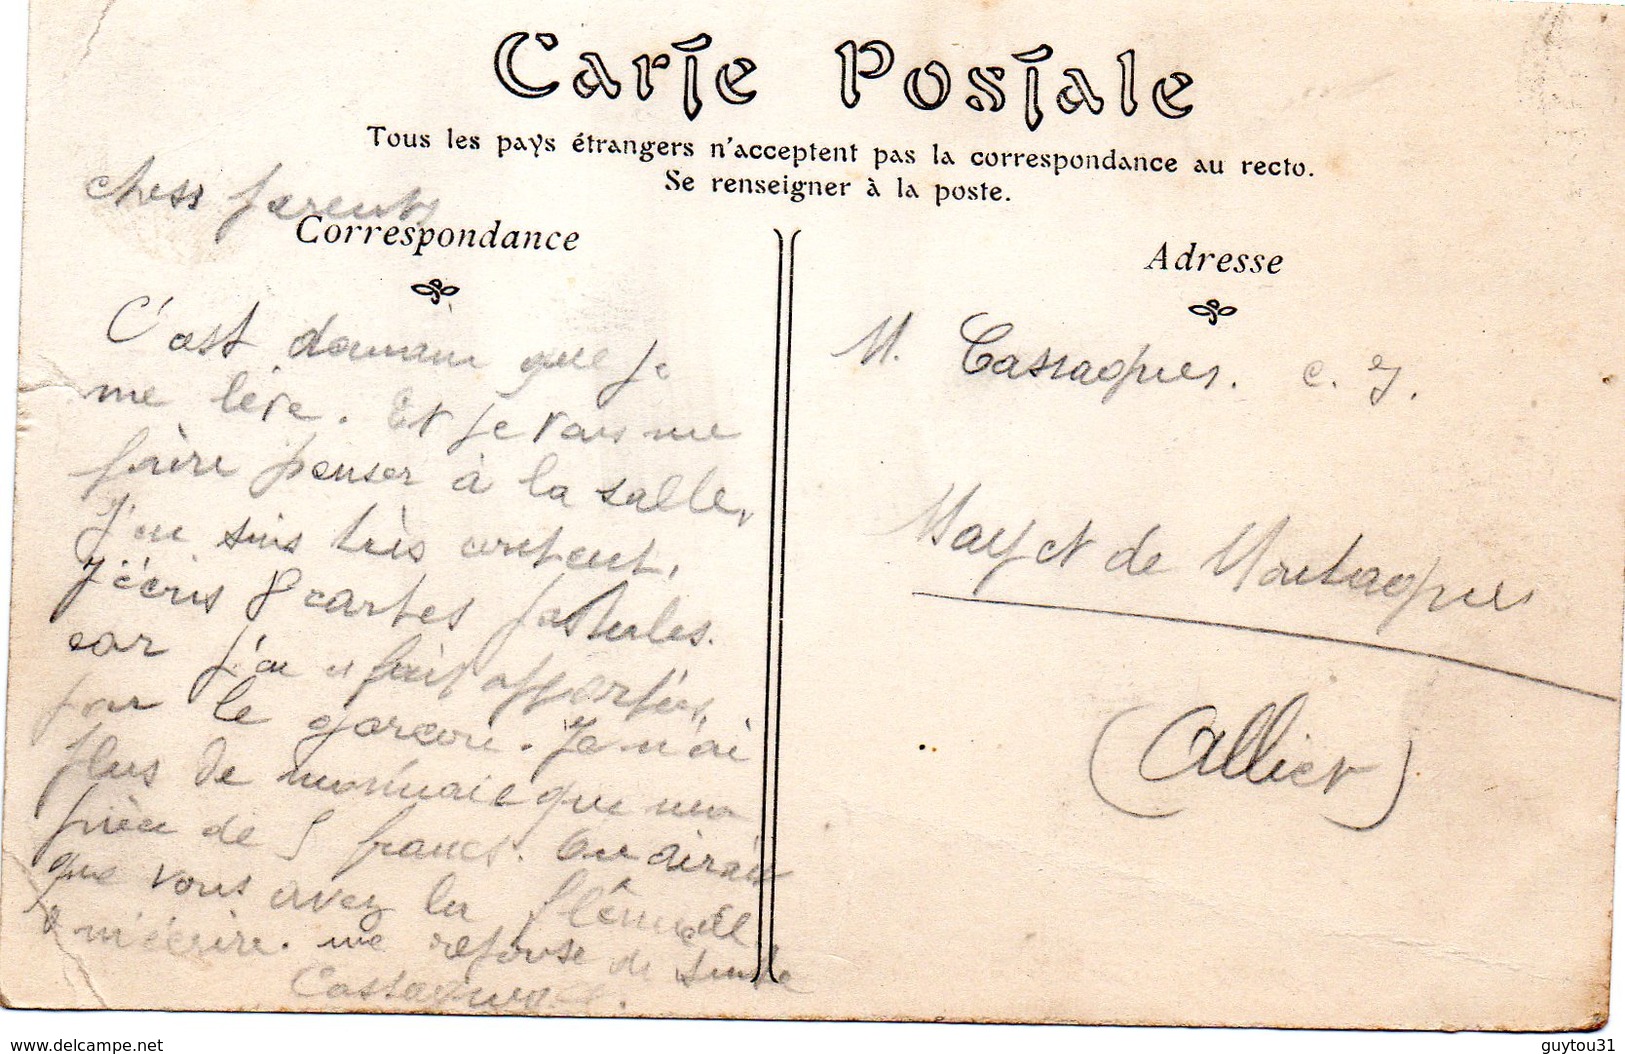 Carte Postale
Tous les pays étrangers n'acceptent pas la correspondance au recto.
Se renseigner à la poste.
chers parents
Correspondance
C'est demain que je
me lève. Et je vais me
faire penser à la salle,
J'en suis très content,
J'écris 8 cartes postales.
car j'en ai fait apporter,
par le garçon. Je n'ai
plus de monnaie que une
pièce de 5 francs. On dirait
que vous avez la flemme
à m'écrire. une réponse de suite
Adresse
M. Cassagnes. c. J.
Mayet de Montagnes
(Allier)
delcampe.net
guytou31